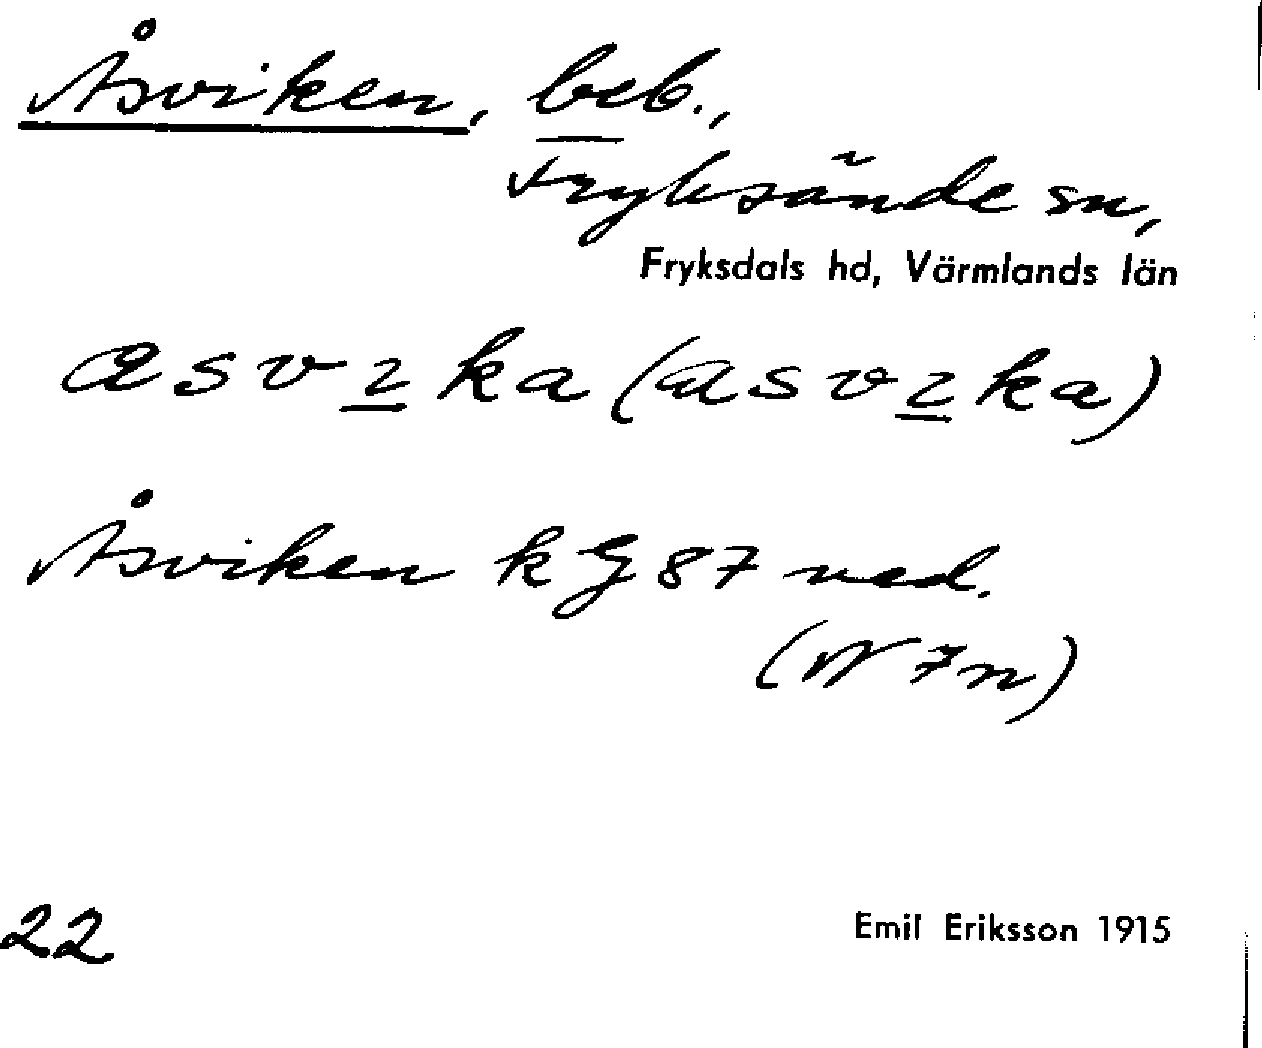 Åsviken, beb.,
Fryksände sn,
Fryksdals hd, Värmlands län
Åsviken kG 87 ned.
(W 7n)
22 Emil Eriksson 1915